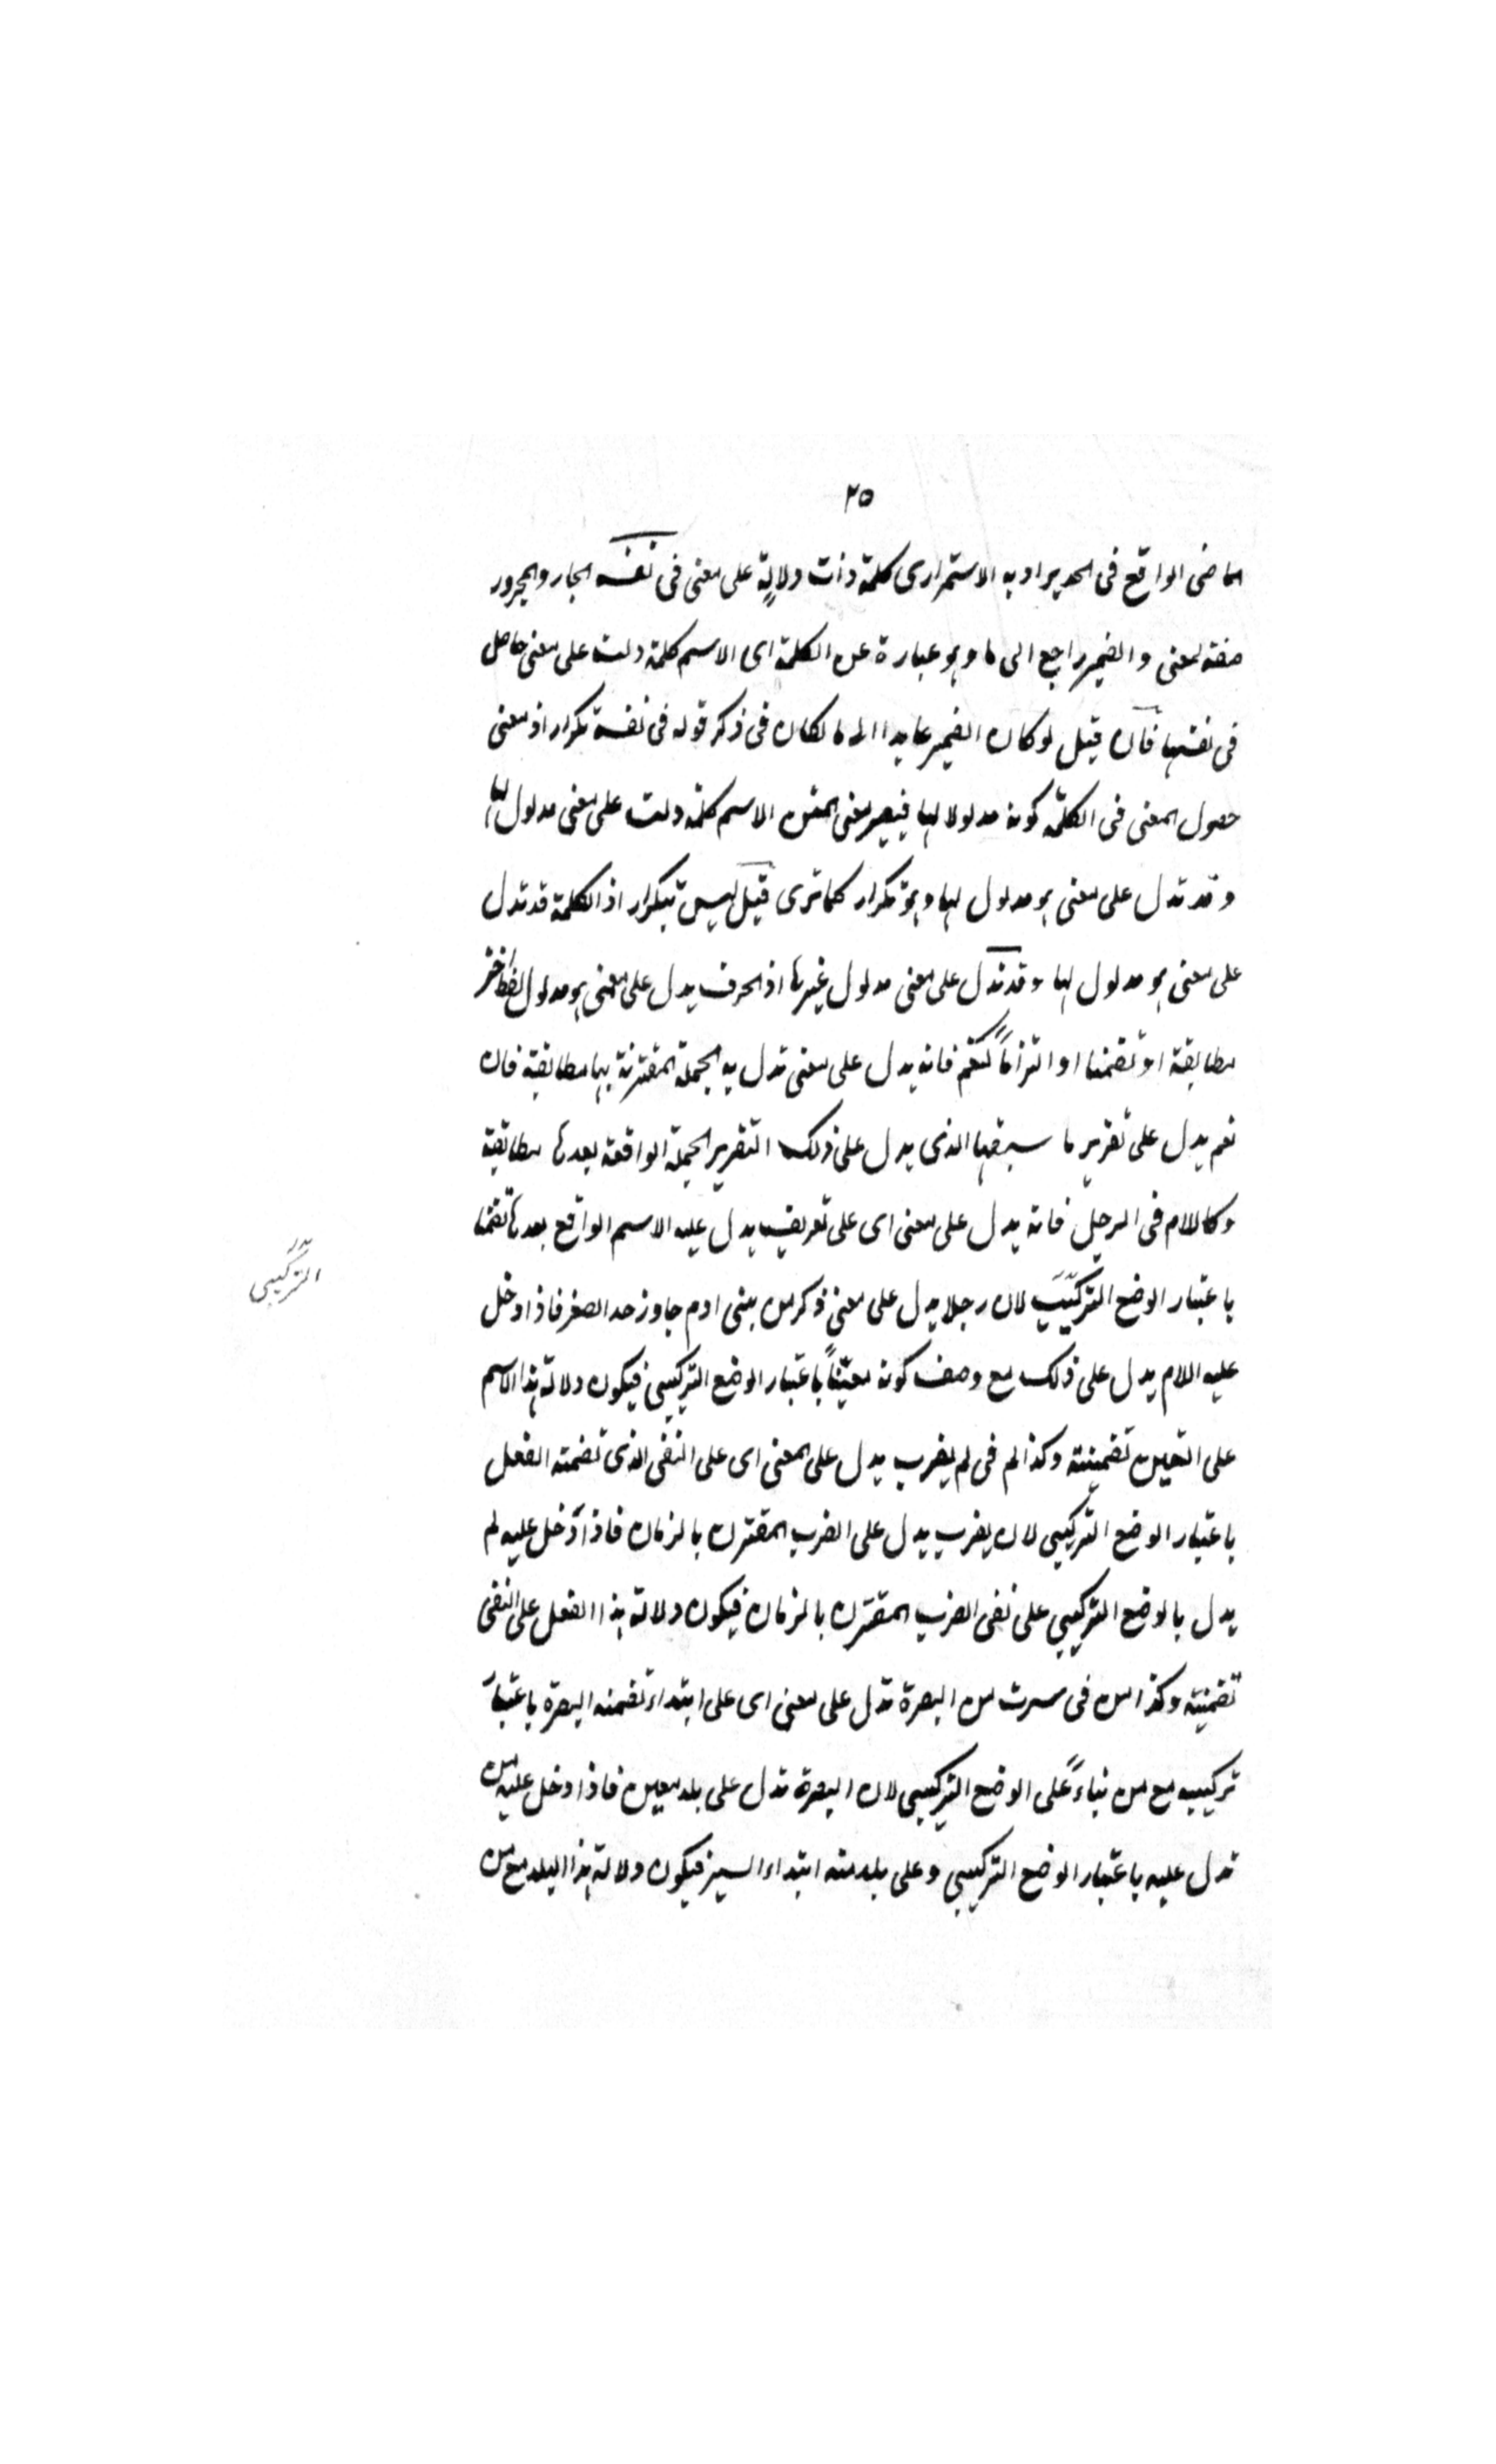 ٢٥
الماضى الواقع فى الحد يراد به الاستمرارى كلمة ذات دلالة على معنى فى نفسه الجار والمجرور
صفة لمعنى والضمير راجع الى ما وهو عبارة عن الكلمة اى الاسم كلمة دلت على معنى حاصل
فى نفسها فان قيل لو كان الضمير عايدا الى ما لكان فى ذكر قوله فى نفسه تكرار اذ معنى
حصول المعنى فى الكلمة كونه مدلولا لها فيصير معنى المتن الاسم كلمة دلت على معنى مدلول لها
وقد تدل على معنى هو مدلول لها وهو تكرار كما ترى قيل ليس بتكرار اذ الكلمة قد تدل
على معنى هو مدلول لها وقد تدل على معنى مدلول غيرها اذ الحرف يدل على معنى هو مدلول لفظ اخر
مطابقة او تضمنا او التزاماً كنعم فانه يدل على معنى تدل به الجملة المقترنة بها مطابقة فان
نعم يدل على تقرير ما سبقها الذى يدل على ذلك التقرير الجملة الواقعة بعدها مطابقة
وكاللام فى الرجل فانه يدل على معنى اى على تعريف يدل عليه الاسم الواقع بعدها تضمنا
باعتبار الوضع التركيبى لان رجلا يدل على معنى ذكر من بنى ادم جاوز حد الصغر فاذا دخل
التركيبى
عليه اللام يدل على ذلك مع وصف كونه معيّناً باعتبار الوضع التركيبى فيكون دلالة هذا الاسم
على التعين تضمينته وكذا لم فى لم يضرب يدل على المعنى اى على النفى الذى تضمنه الفعل
باعتبار الوضع التركيبى لان يضرب يدل على الضرب المقترن بالزمان فاذا دخل عليه لم
يدل بالوضع التركيبى على نفى الضرب المقترن بالزمان فيكون دلالة هذا الفعل على النفى
تضمنيته وكذا من فى سرت من البصرة تدل على معنى اى على ابتداء تضمنه البصرة باعتبار
تركيبه مع من بناءً على الوضع التركيبى لان البصرة تدل على بلد معين فاذا دخل عليه من
تدل عليه باعتبار الوضع التركيبى وعلى بلد منه ابتداء السير فيكون دلالة هذا البلد مع من